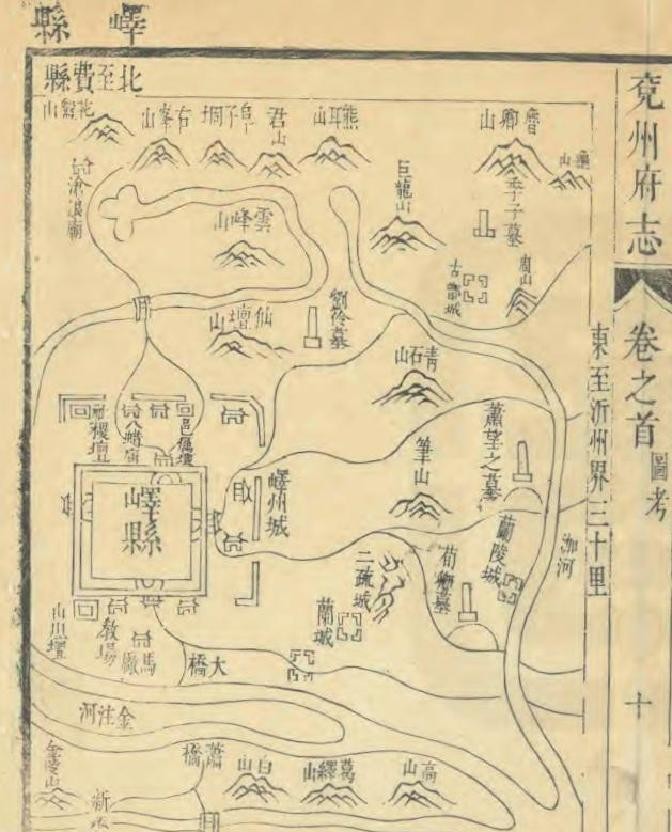 兗州府志
卷之首
圖考
十
嶧縣
北至費縣
東至沂州界三十里
魯卿山
熊耳山
君山
花盤山
季子墓
巨龍山
雲峰山
古鄫城
仙壇山
劉伶墓
青石山
蕭望之墓
筆山
嶧州城
嶧縣
蘭陵城
泇河
荀卿墓
二疏城
蘭城
社稷壇
八蜡廟
山川壇
教場
馬廠
大橋
金注河
蕭橋
白山
葛繹山
高山